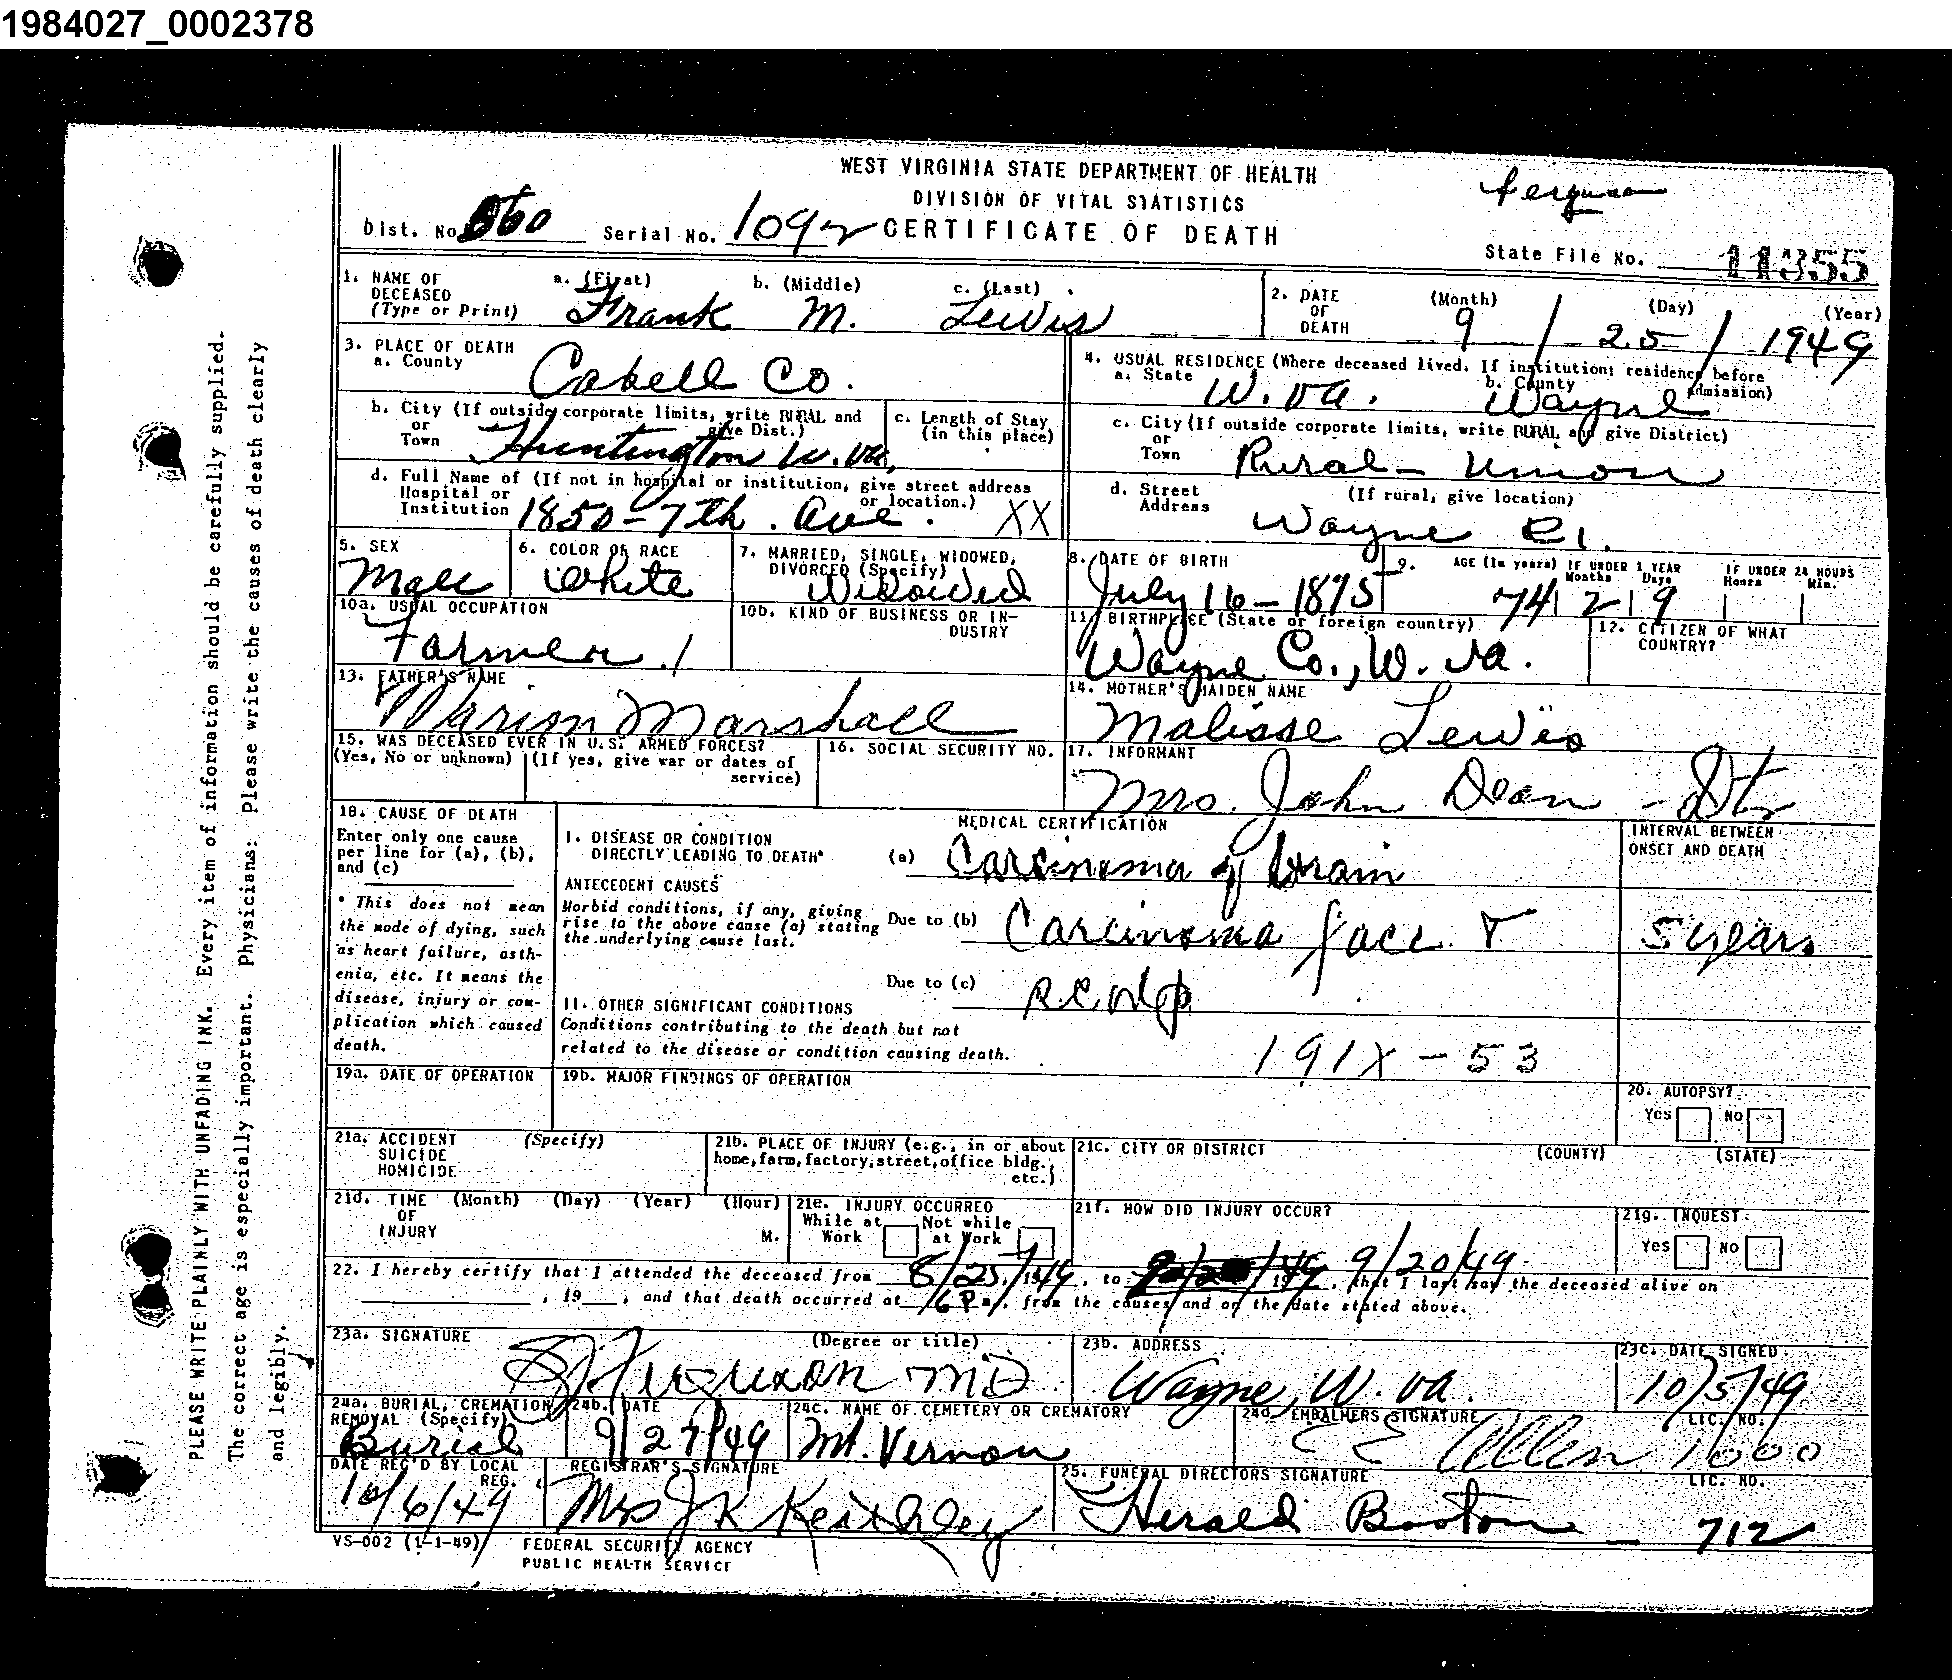 1984027_0002378
WEST VIRGINIA STATE DEPARTMENT OF HEALTH
DIVISION OF VITAL STATISTICS
CERTIFICATE OF DEATH
Ferguson
Dist. No. 560 Serial No. 1092
State File No. 11355
1. NAME OF DECEASED (Type or Print) a. (First) Frank b. (Middle) M. c. (Last) Lewis
2. DATE OF DEATH (Month) 9 / (Day) 25 / (Year) 1949
3. PLACE OF DEATH a. County Cabell Co.
4. USUAL RESIDENCE (Where deceased lived. If institution: residence before admission) a. State W. Va. b. County Wayne
b. City (If outside corporate limits, write RURAL and give Dist.) or Town Huntington W. Va.
c. Length of Stay (in this place)
c. City (If outside corporate limits, write RURAL and give District) or Town Rural - Union
d. Full Name of (If not in hospital or institution, give street address or location.) Hospital or Institution 1850 - 7th. Ave. XX
d. Street Address (If rural, give location) Wayne R1.
5. SEX Male
6. COLOR OR RACE White
7. MARRIED, SINGLE, WIDOWED, DIVORCED (Specify) Widowed
8. DATE OF BIRTH July 16 - 1875
9. AGE (In years) 74 IF UNDER 1 YEAR Months 2 Days 9 IF UNDER 24 HOURS Hours Min.
10a. USUAL OCCUPATION Farmer 1
10b. KIND OF BUSINESS OR INDUSTRY
11. BIRTHPLACE (State or foreign country) Wayne Co., W. Va.
12. CITIZEN OF WHAT COUNTRY?
13. FATHER'S NAME Marion Marshall
14. MOTHER'S MAIDEN NAME Malisse Lewis
15. WAS DECEASED EVER IN U.S. ARMED FORCES? (Yes, No or unknown) (If yes, give war or dates of service)
16. SOCIAL SECURITY NO.
17. INFORMANT Mrs. John Dean - Dtr
18. CAUSE OF DEATH
Enter only one cause per line for (a), (b), and (c)
* This does not mean the mode of dying, such as heart failure, asthenia, etc. It means the disease, injury or complication which caused death.
MEDICAL CERTIFICATION
INTERVAL BETWEEN ONSET AND DEATH
I. DISEASE OR CONDITION DIRECTLY LEADING TO DEATH* (a) Carcinoma of brain
ANTECEDENT CAUSES
Morbid conditions, if any, giving rise to the above cause (a) stating the underlying cause last.
Due to (b) Carcinoma face & 5 years
Due to (c) scalp
II. OTHER SIGNIFICANT CONDITIONS
Conditions contributing to the death but not related to the disease or condition causing death.
191X - 53
19a. DATE OF OPERATION
19b. MAJOR FINDINGS OF OPERATION
20. AUTOPSY? Yes No
21a. ACCIDENT SUICIDE HOMICIDE (Specify)
21b. PLACE OF INJURY (e.g., in or about home, farm, factory, street, office bldg., etc.)
21c. CITY OR DISTRICT (COUNTY) (STATE)
21d. TIME OF INJURY (Month) (Day) (Year) (Hour) M.
21e. INJURY OCCURRED While at Work Not while at Work
21f. HOW DID INJURY OCCUR?
21g. INQUEST Yes No
22. I hereby certify that I attended the deceased from 8/25/1949, to 9/20/49, that I last saw the deceased alive on
, 19 , and that death occurred at 6 P m., from the causes and on the date stated above.
23a. SIGNATURE (Degree or title) Ferguson MD
23b. ADDRESS Wayne, W. Va.
23c. DATE SIGNED 10/5/49
24a. BURIAL, CREMATION REMOVAL (Specify) Burial
24b. DATE 9/27/49
24c. NAME OF CEMETERY OR CREMATORY Mt. Vernon
24d. EMBALMERS SIGNATURE Allen LIC. NO. 1000
DATE REC'D BY LOCAL REG. 10/6/49
REGISTRAR'S SIGNATURE Mrs J K Keithley
25. FUNERAL DIRECTORS SIGNATURE Herald Booton LIC. NO. 712
VS-002 (1-1-49)
FEDERAL SECURITY AGENCY
PUBLIC HEALTH SERVICE
PLEASE WRITE PLAINLY WITH UNFADING INK. Every item of information should be carefully supplied.
The correct age is especially important. Physicians: Please write the causes of death clearly
and legibly.